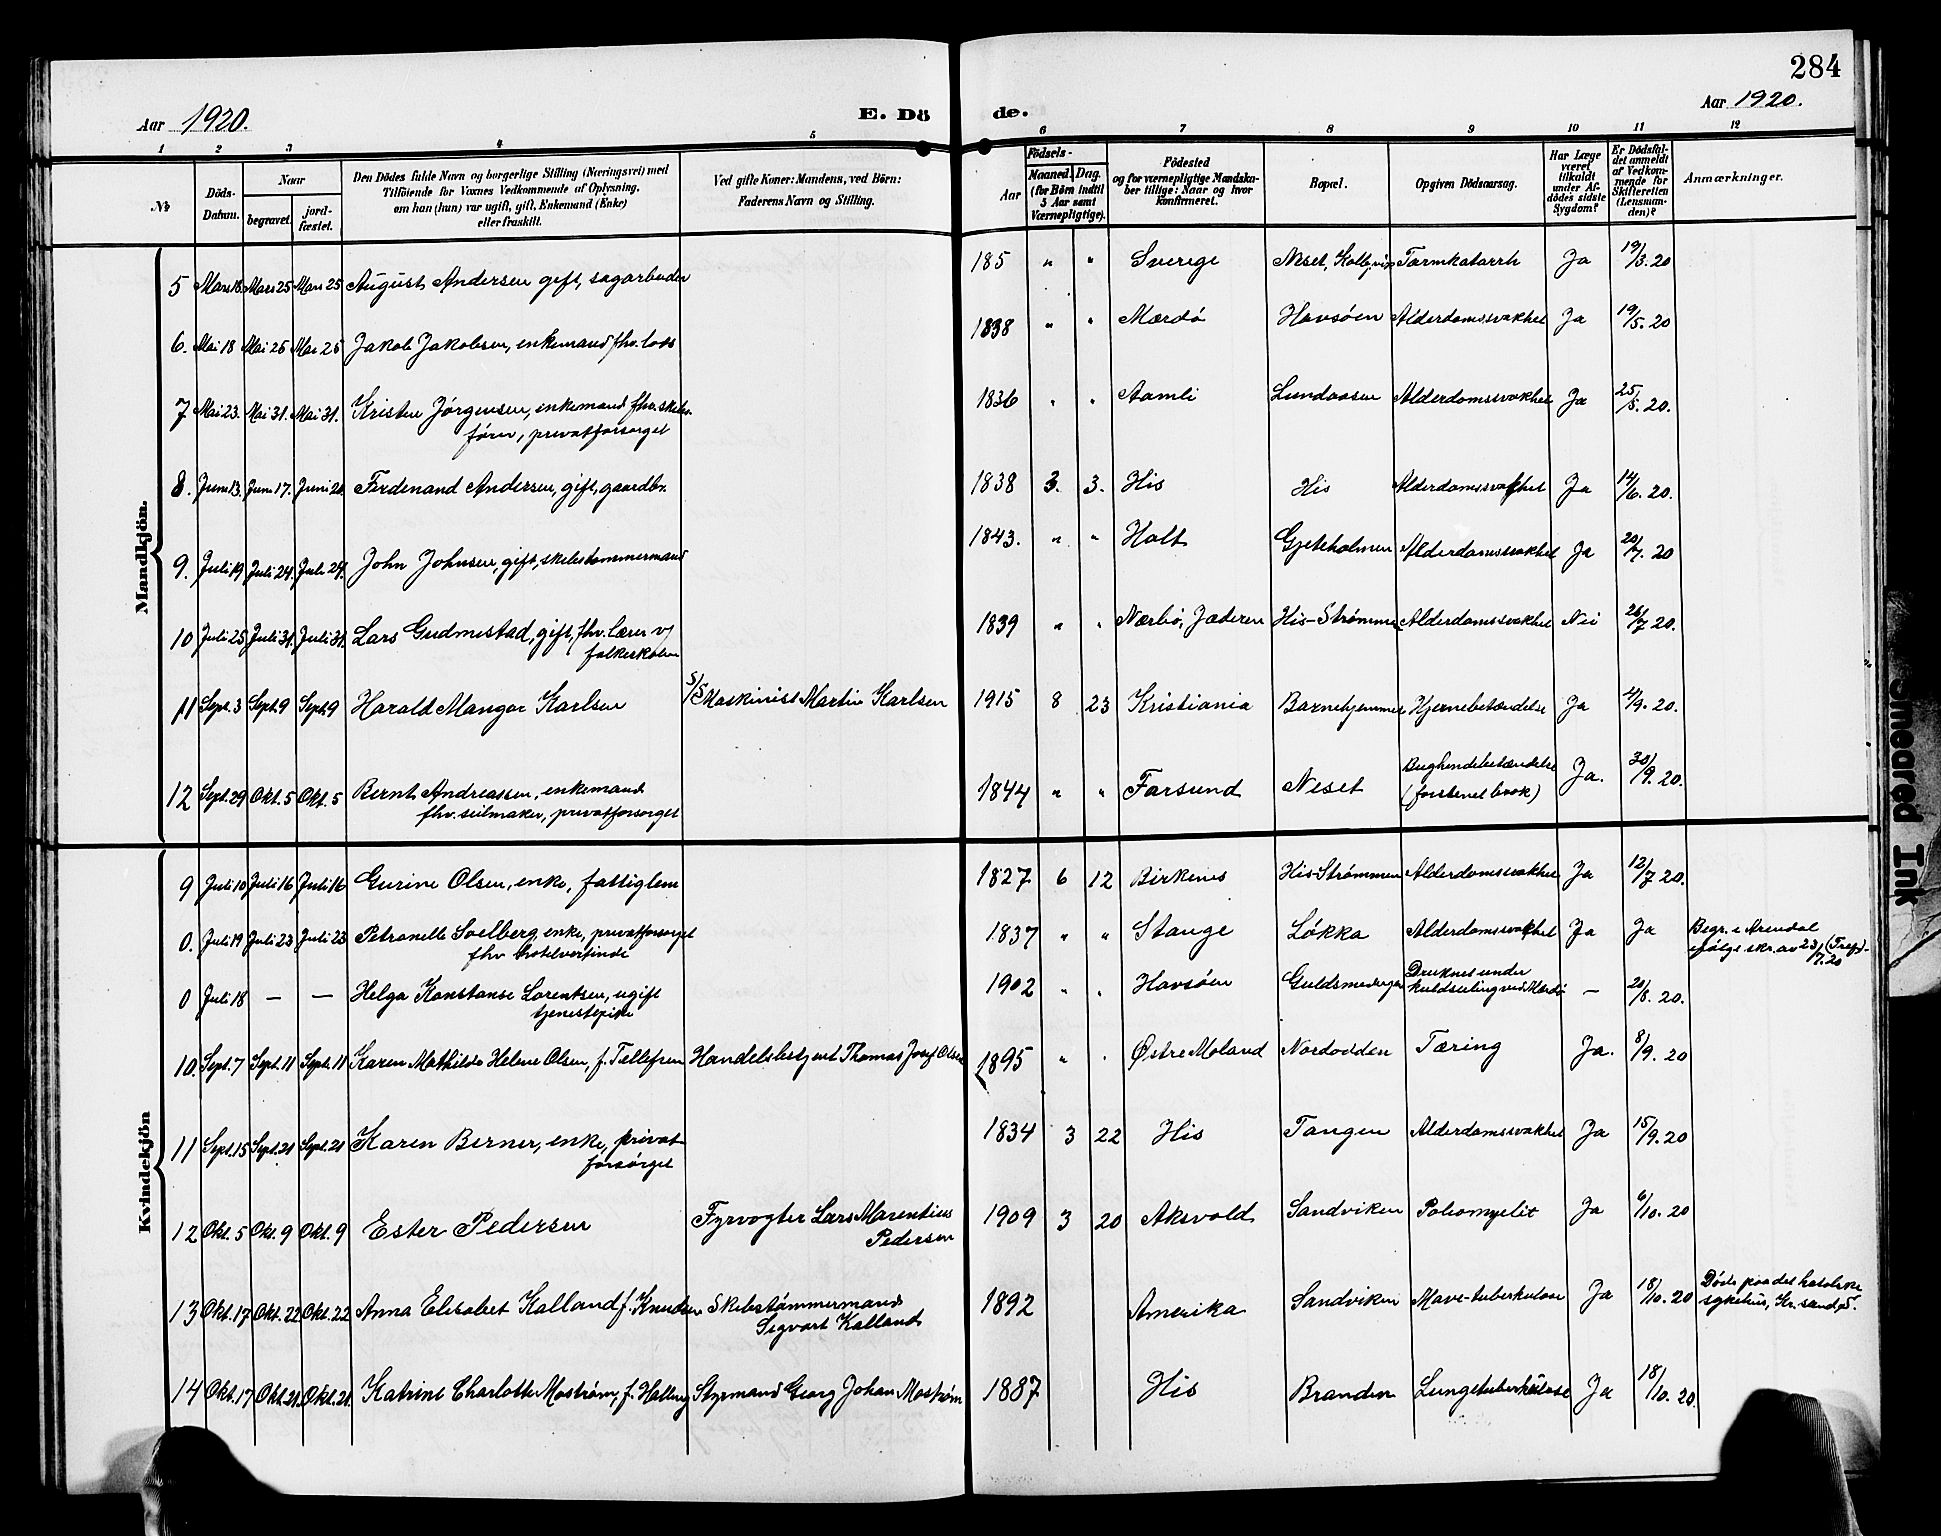 284
Aar 1920.
E. Dö
de.
Aar 1920.
1 2 3 4 5 6 7 8 9 10 11 12
№
Döds-
Datum.
Naar
begravet.
jord-
fæstet.
Den Dödes fulde Navn og borgerlige Stilling (Næringsvei) med
Tilföiende for Voxnes Vedkommende af Oplysning,
om han (hun) var ugift, gift, Enkemand (Enke)
eller fraskilt.
Ved gifte Koner: Mandens, ved Börn:
Faderens Navn og Stilling.
Födsels-
Aar
Maaned. Dag.
(for Börn indtil
5 Aar samt
Værnepligtige).
Födested
og for værnepligtige Mandska-
ber tillige: Naar og hvor
konfirmeret.
Bopæl.
Opgiven Dödsaarsag.
Har Læge
været
tilkaldt
under Af-
dödes sidste
Sygdom?
Er Dödsfal-
det anmeldt
af Vedkom-
mende for
Skifteretten
(Lensman-
den)?
Anmærkninger.
Mandkjön.
5 Mars 18. Mars 25 Mars 25 August Andersen gift, sagarbeider 185 " " Sverige Neset, Kolbj.vig Tarmkatarrh Ja 19/3. 20
6. Mai 18 Mai 25 Mai 25 Jakob Jakobsen, enkemand fhv. lods 1838 " " Mærdø Havsøen Alderdomssvakhet Ja 19/5. 20
7 Mai 23. Mai 31. Mai 31. Kristen Jørgensen, enkemand fhv. skibs-
fører, privatforsørget 1836 " " Aamli Lundaasen Alderdomssvakhet Ja 25/5. 20.
8. Juni 13. Juni 17. Juni 20 Ferdenand Andersen, gift, gaardbr. 1838 3. 3. His His Alderdomssvakhet Ja 14/6. 20.
9. Juli 19 Juli 24. Juli 24. John Johnsen, gift, skibstømmermand 1843. " " Holt Gjeteholmen Alderdomssvakhet Ja 20/7. 20
10 Juli 25 Juli 31. Juli 31. Lars Gudmestad, gift, fhv. lærer v/
folkeskolen 1839 " " Nærbø, Jæderen His-Strømmen Alderdomssvakhet Nei 26/7 20.
11 Sept. 3 Sept. 9 Sept. 9 Harald Mangor Karlsen S/S Maskinist Martin Karlsen 1915 8 23 Kristiania Barnehjemmet Hjernebetændelse Ja 4/9. 20.
12 Sept. 29 Okt. 5 Okt. 5 Bernt Andreassen, enkemand
fhv. seilmaker, privatforsørget 1844 " " Farsund Neset Bughindebetændelse
(forstenet brok) Ja. 30/9. 20.
Kvindekjön
9 Juli 10 Juli 16 Juli 16 Gurine Olsen, enke, fattiglem 1827 6 12 Birkenes His-Strømmen Alderdomssvakhet Ja 12/7 20.
0. Juli 19 Juli 23 Juli 23 Petronelle Soelberg, enke, privatforsørget
fhv hotelvertinde 1837 " " Stange Løkka Alderdomssvakhet Ja Ja Begr. i Arendal
ifølge skr. av 23/7. 20 (Trefj.)-
0 Juli 18 — — Helga Konstanse Lorentsen, ugift
tjenestepike 1902 " " Havsøen Guldsmedengen Druknet under
kuldseiling ved Mærdø — 20/8. 20.
10. Sept. 7 Sept. 11 Sept. 11 Karen Mathilde Helene Olsen, f. Tellefsen Handelsbetjent Thomas Josef Olsen 1895 " " Østre Moland Nordodden Tæring Ja. 8/9. 20
11 Sept. 15 Sept. 21 Sept. 21 Karen Berner, enke, privat
forsørget 1834 3 22 His Tangen Alderdomssvakhet Ja 15/9. 20
12 Okt. 5 Okt. 9 Okt. 9 Ester Pedersen Fyrvogter Lars Marentius
Pedersen 1909 3 20 Aksvold Sandviken Poliomyelit Ja 6/10. 20
13 Okt. 17 Okt. 22 Okt. 22 Anna Elisabet Kalland f. Knudsen Skibstømmermand
Sigvart Kalland 1892 Amerika Sandviken Mave-tuberkulose Ja 18/10. 20 Døde paa det katolske
sykehus, Kr.sand S.
14 Okt. 17 Okt. 21. Okt. 21. Katrine Charlotte Mostrøm, f. Halling Styrmand Georg Johan Mostrøm 1887 His Branden Lungetuberkulose Ja 18/10. 20.
Smeared Ink